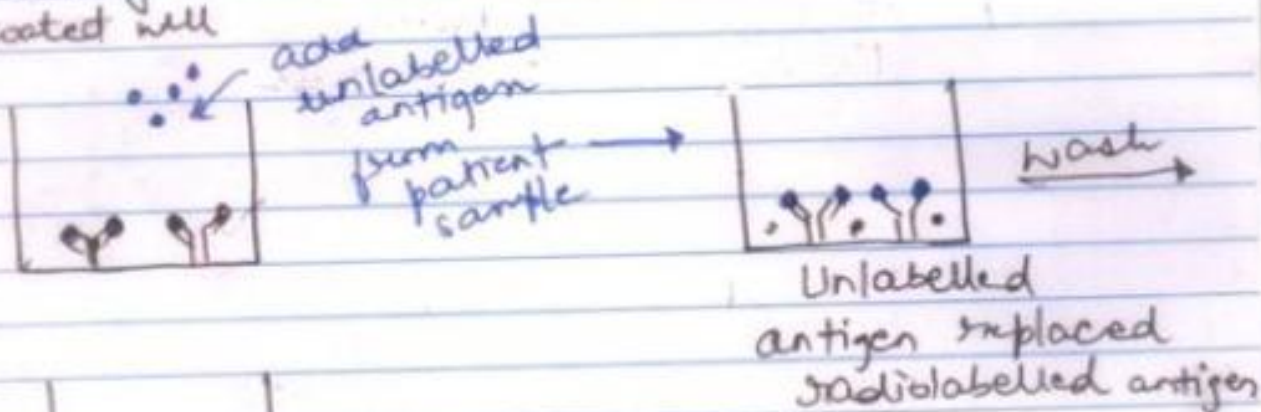 coated well
add
unlabelled
antigen
from
patient
sample
wash
Unlabelled
antigen replaced
radiolabelled antigen